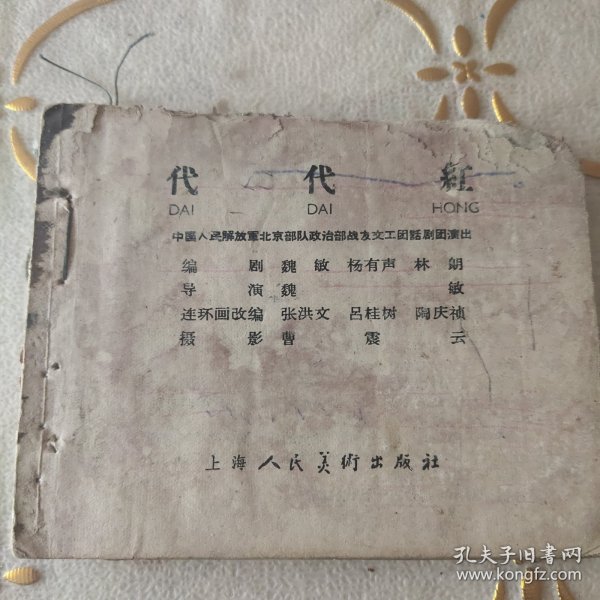 代代紅
DAI DAI HONG
中国人民解放軍北京部队政治部战友文工团話剧团演出
编 剧 魏 敏 杨有声 林 朗
导 演 魏 敏
连环画改编 张洪文 呂桂树 陶庆祯
摄 影 曹 震 云
上海人民美術出版社
孔夫子旧书网
www.kongfz.com